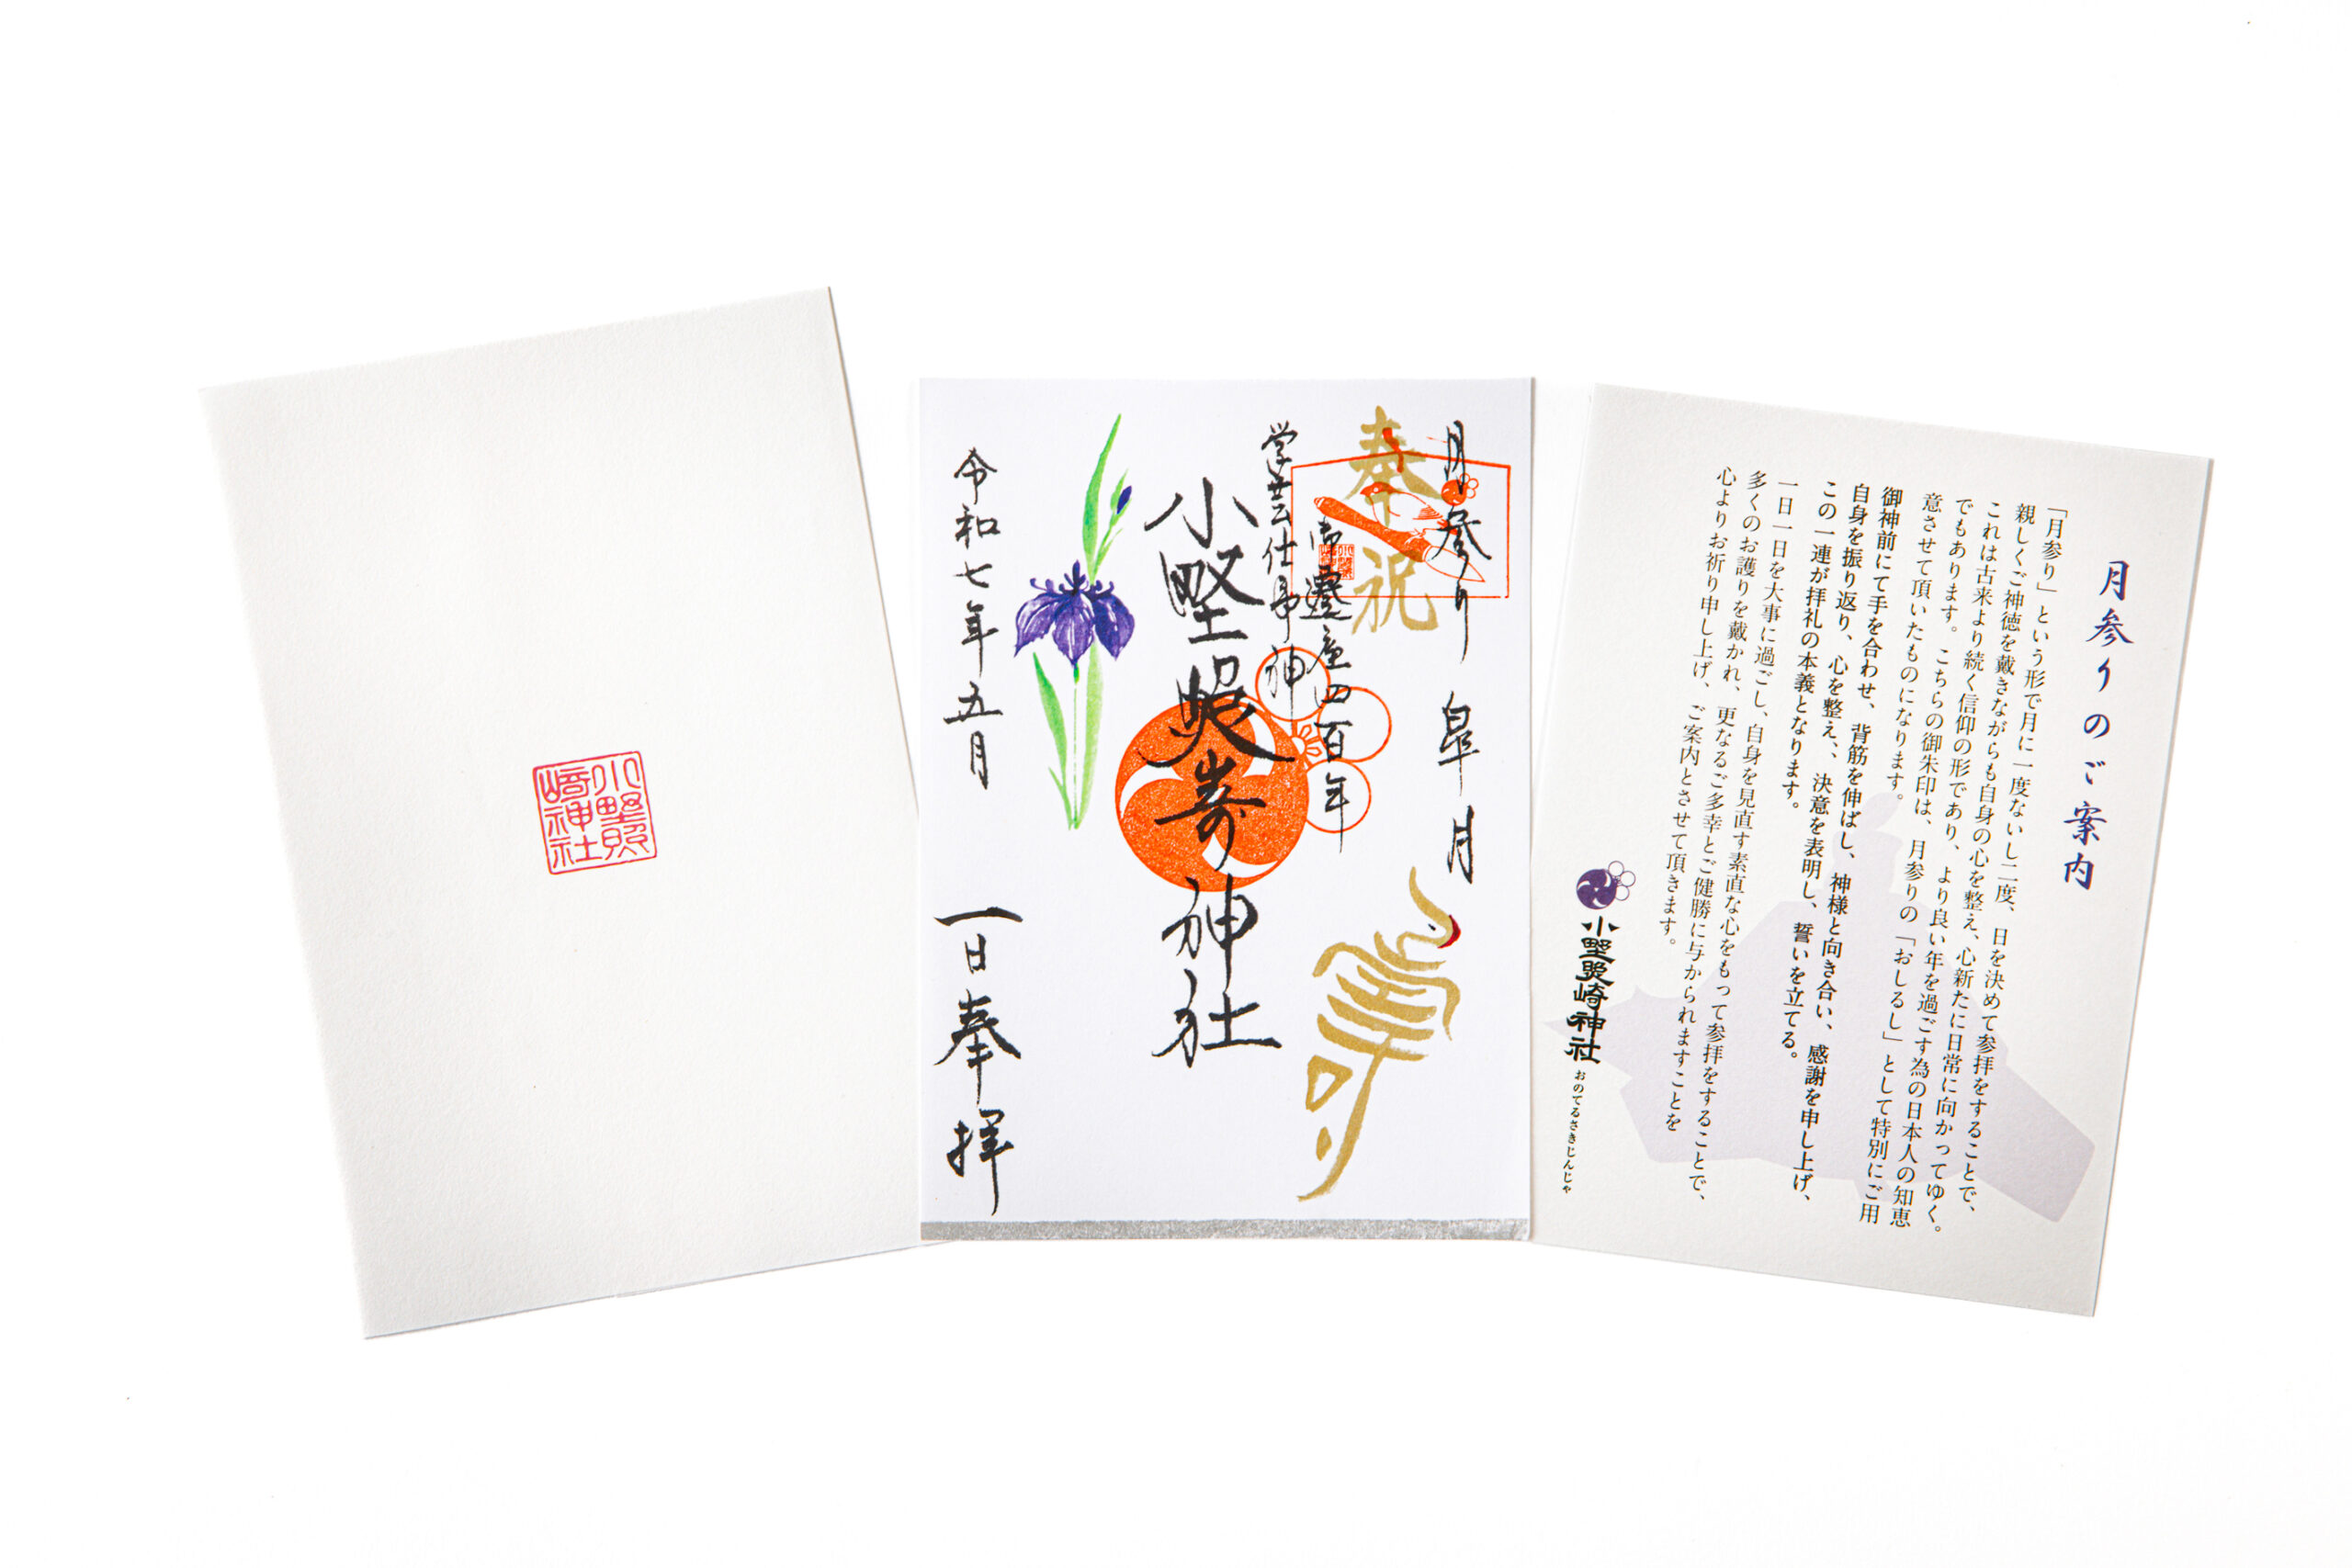 月参りのご案内
「月参り」という形で月に一度ないし二度、日を決めて参拝をすることで、
親しくご神徳を戴きながらも自身の心を整え、心新たに日常に向かってゆく。
これは古来より続く信仰の形であり、より良い年を過ごす為の日本人の知恵
でもあります。こちらの御朱印は、月参りの「おしるし」として特別にご用
意させて頂いたものになります。
御神前にて手を合わせ、背筋を伸ばし、神様と向き合い、感謝を申し上げ、
自身を振り返り、心を整え、、決意を表明し、誓いを立てる。
この一連が拝礼の本義となります。
一日一日を大事に過ごし、自身を見直す素直な心をもって参拝をすることで、
多くのお護りを戴かれ、更なるご多幸とご健勝に与かられますことを
心よりお祈り申し上げ、ご案内とさせて頂きます。
小野照崎神社
おのてるさきじんじゃ
月参り 皐月
奉祝
遷座四百年
学芸仕事神
小野照崎神社
令和七年五月一日奉拝
小野照
崎神社